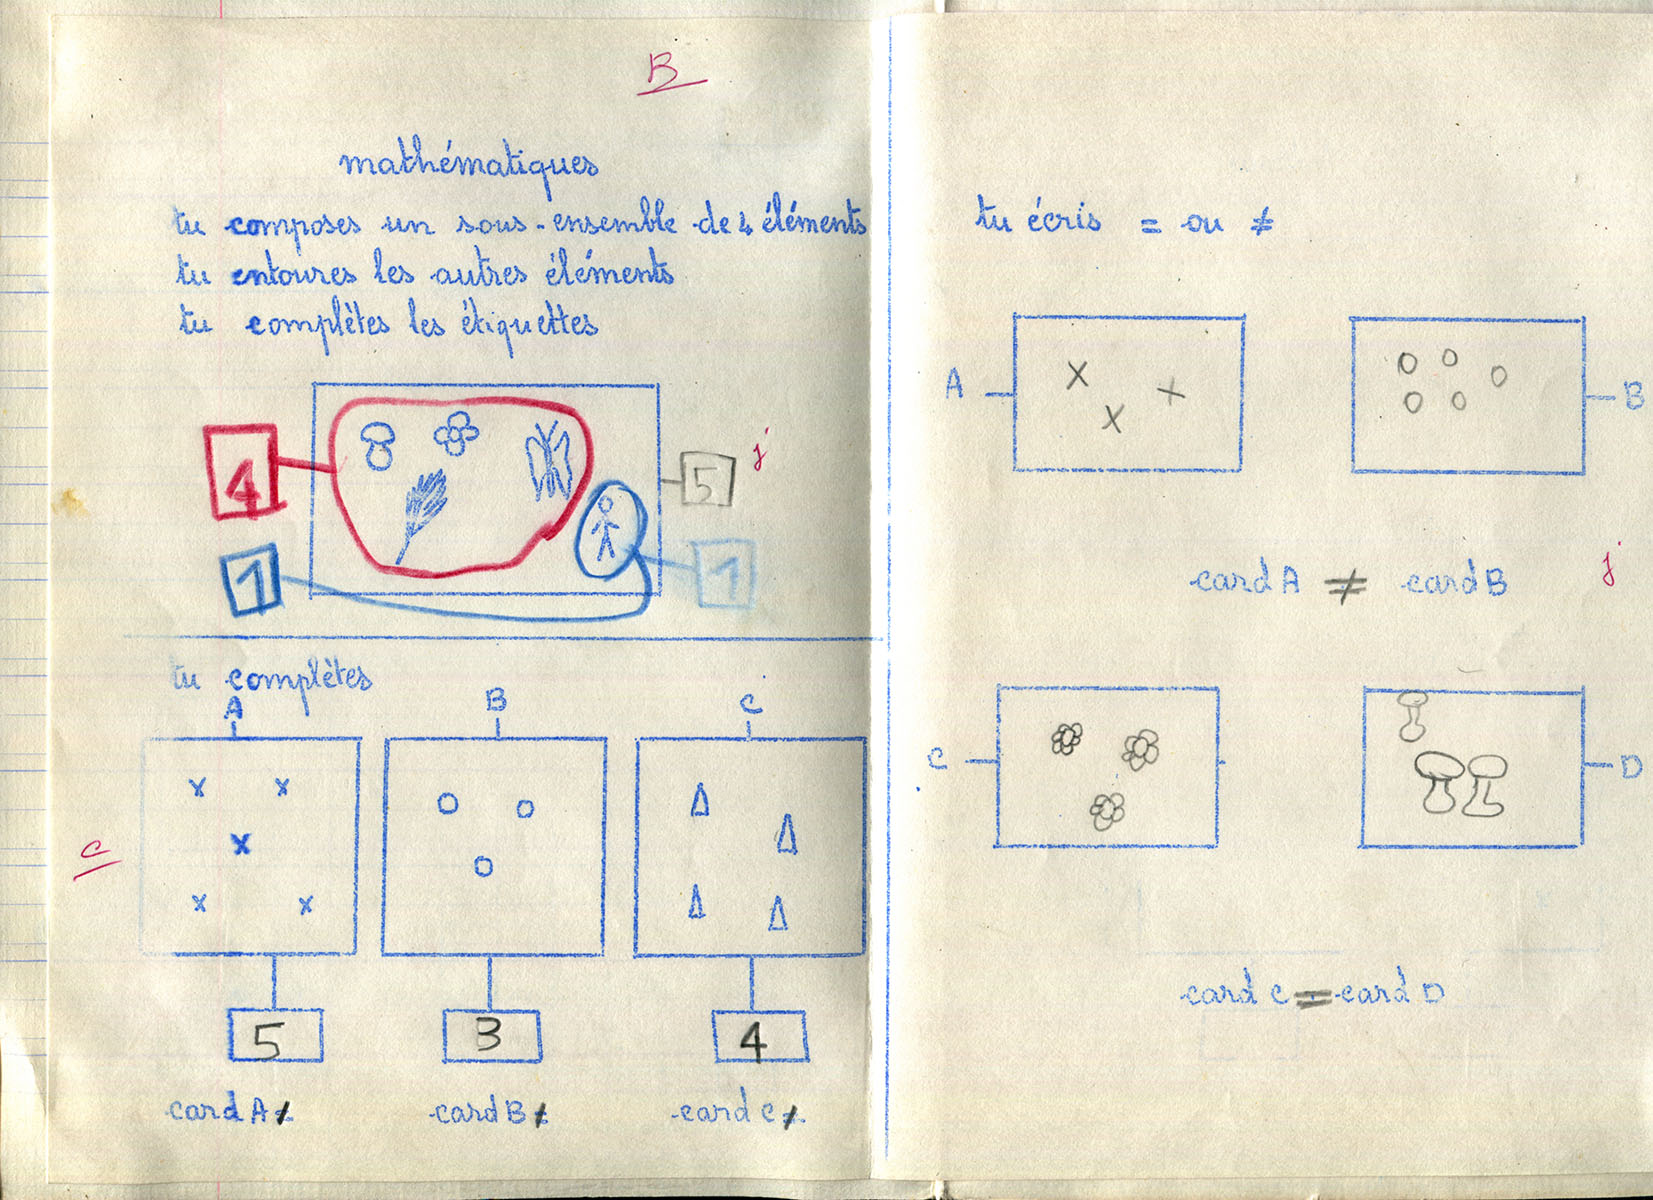 B
mathématiques
tu composes un sous-ensemble de 4 éléments
tu entoures les autres éléments
tu complètes les étiquettes
4
5
j
1
1
tu complètes
A B C
c
5 3 4
card A ≠ card B ≠ card C ≠
tu écris = ou ≠
A B
card A ≠ card B
j
C D
card C = card D